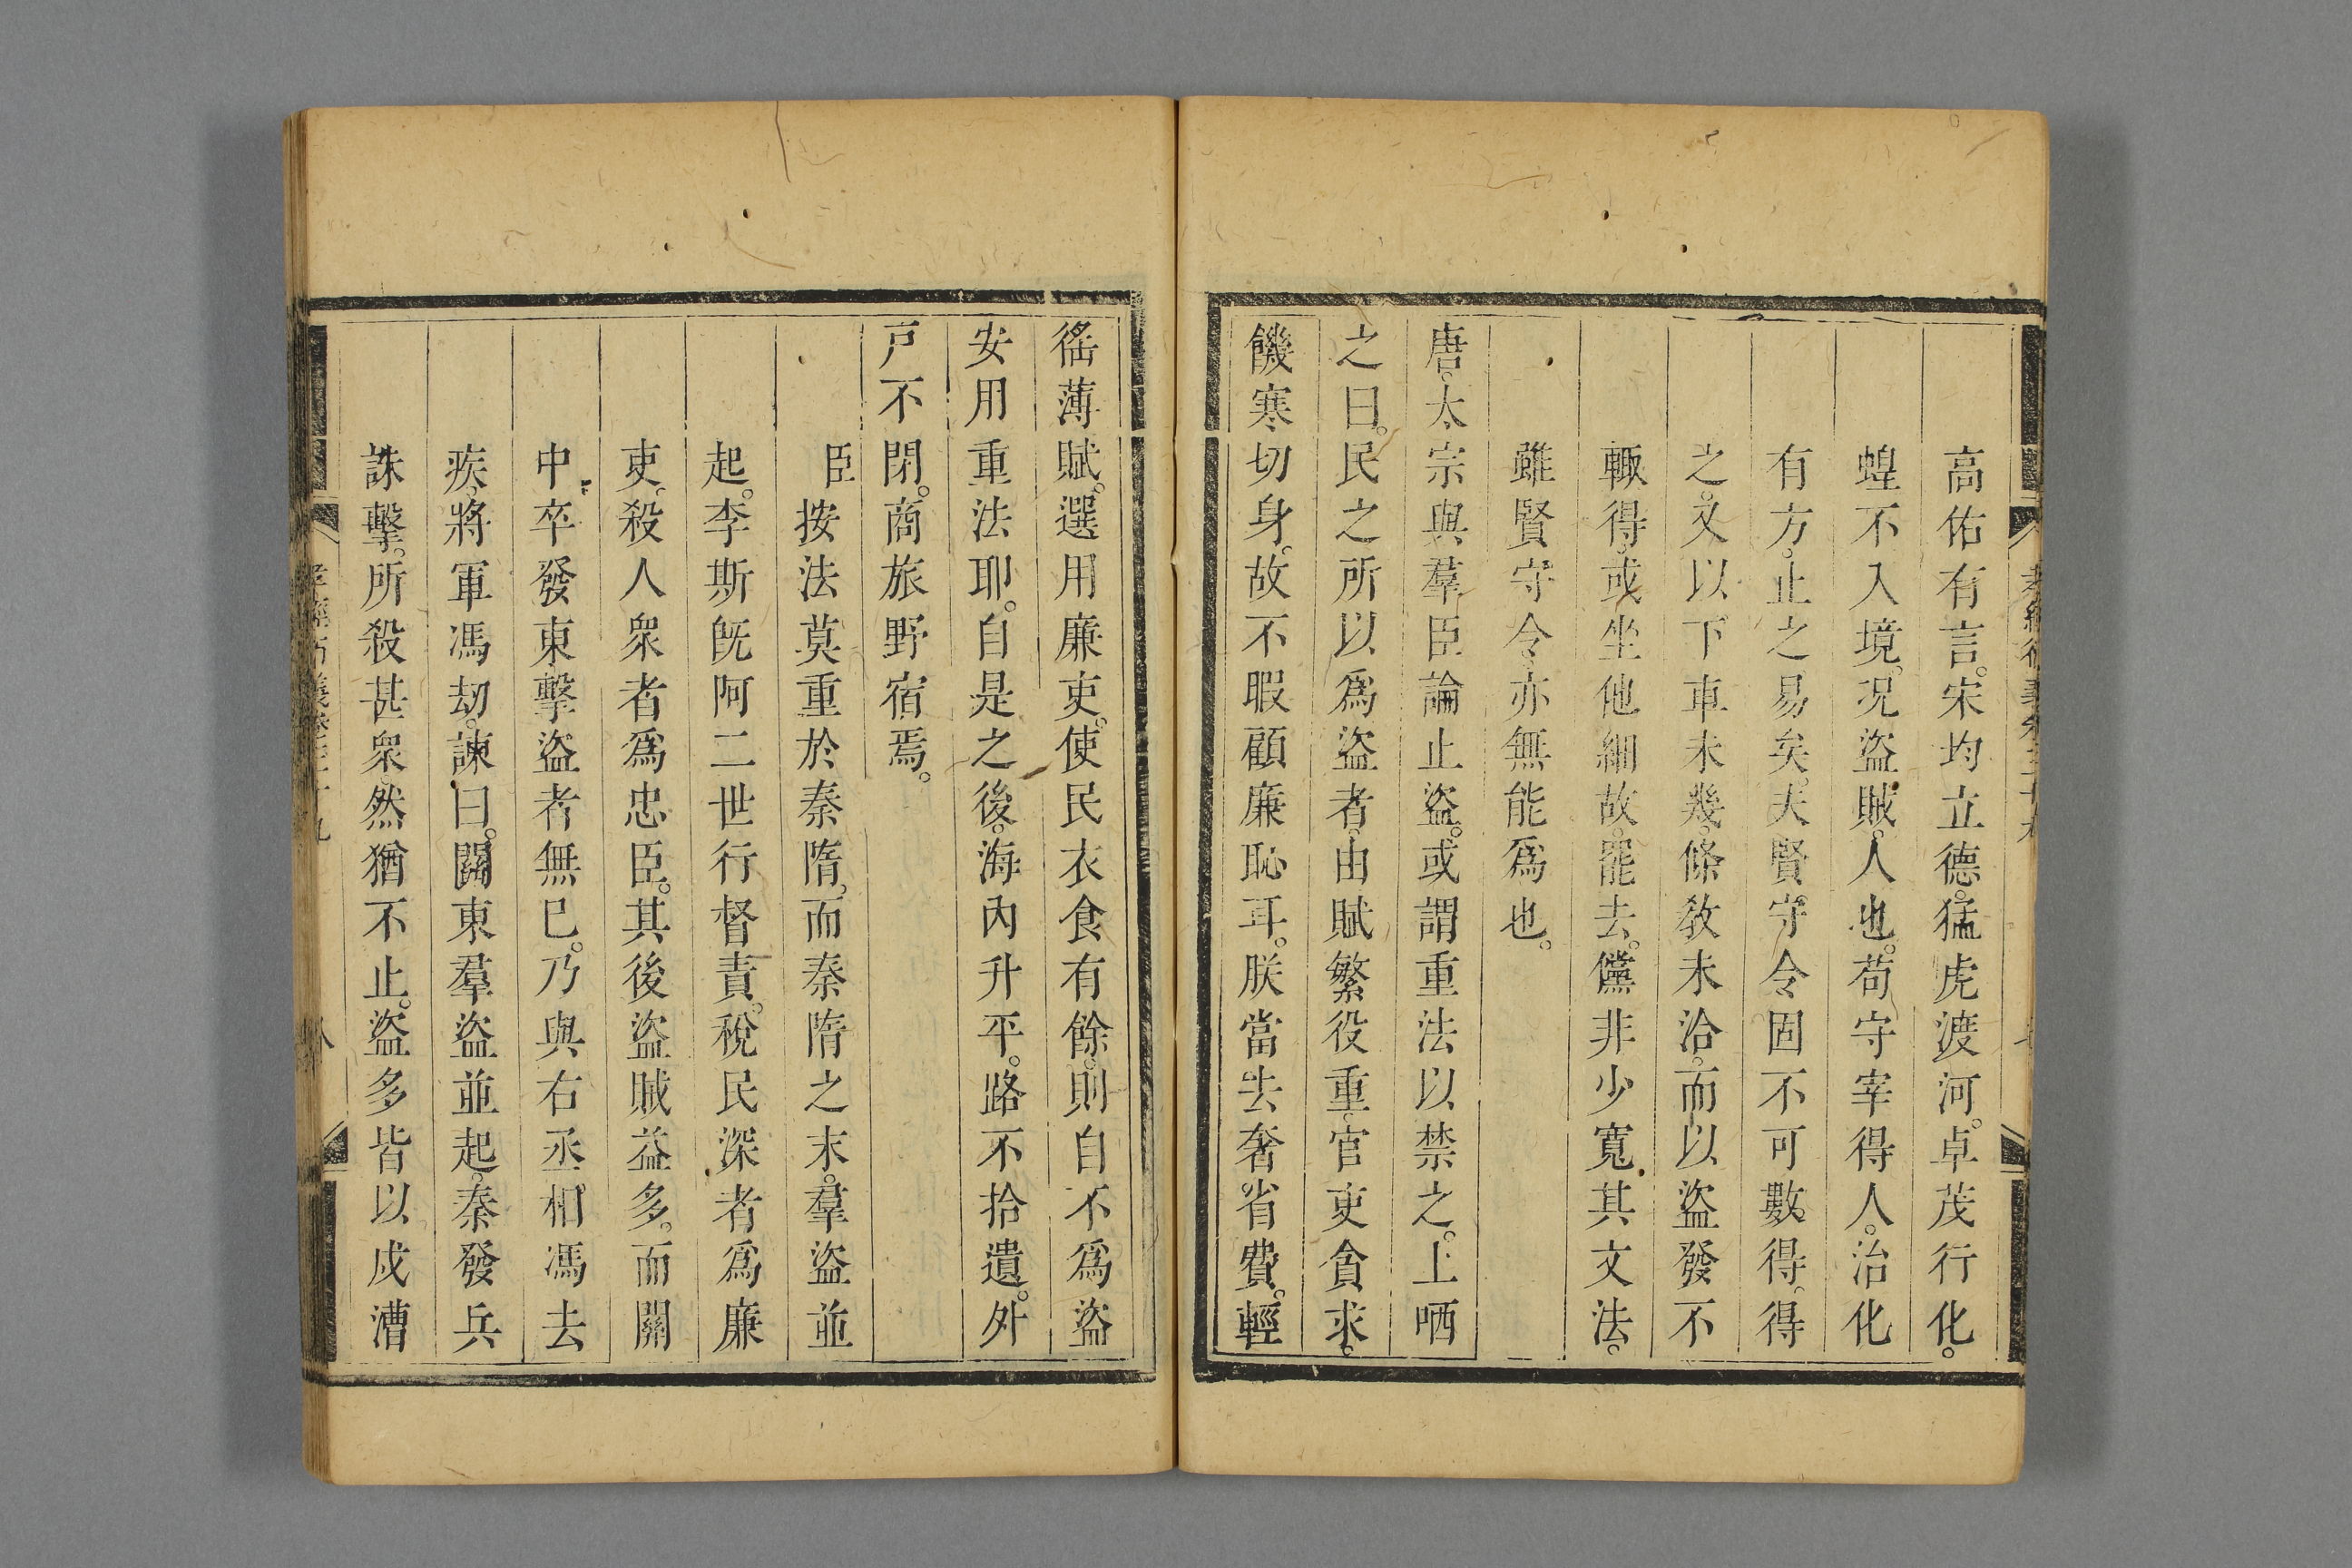 高佑有言。宋均立德。猛虎渡河。卓茂行化。
蝗不入境。况盜賊。人也。苟守宰得人。治化
有方。止之易矣。夫賢守令固不可數得。得
之。又以下車未幾。條教未洽。而以盜發不
輙得。或坐他細故。罷去。儻非少寬其文法。
雖賢守令。亦無能爲也。
唐。太宗與羣臣論止盜。或謂重法以禁之。上哂
之曰。民之所以爲盜者。由賦繁役重。官吏貪求。
饑寒切身。故不暇顧廉恥耳。朕當去奢省費。輕
徭薄賦。選用廉吏。使民衣食有餘。則自不爲盜
安用重法耶。自是之後。海內升平。路不拾遺。外
戸不閉。商旅野宿焉。
臣按法莫重於秦隋。而秦隋之末。羣盜並
起。李斯旣阿二世行督責。稅民深者爲廉
吏。殺人衆者爲忠臣。其後盜賊益多。而關
中卒發東擊盜者無巳。乃與右丞相馮去
疾。將軍馮劫。諫曰。關東羣盜並起。秦發兵
誅擊。所殺甚衆。然猶不止。盜多皆以戍漕
八